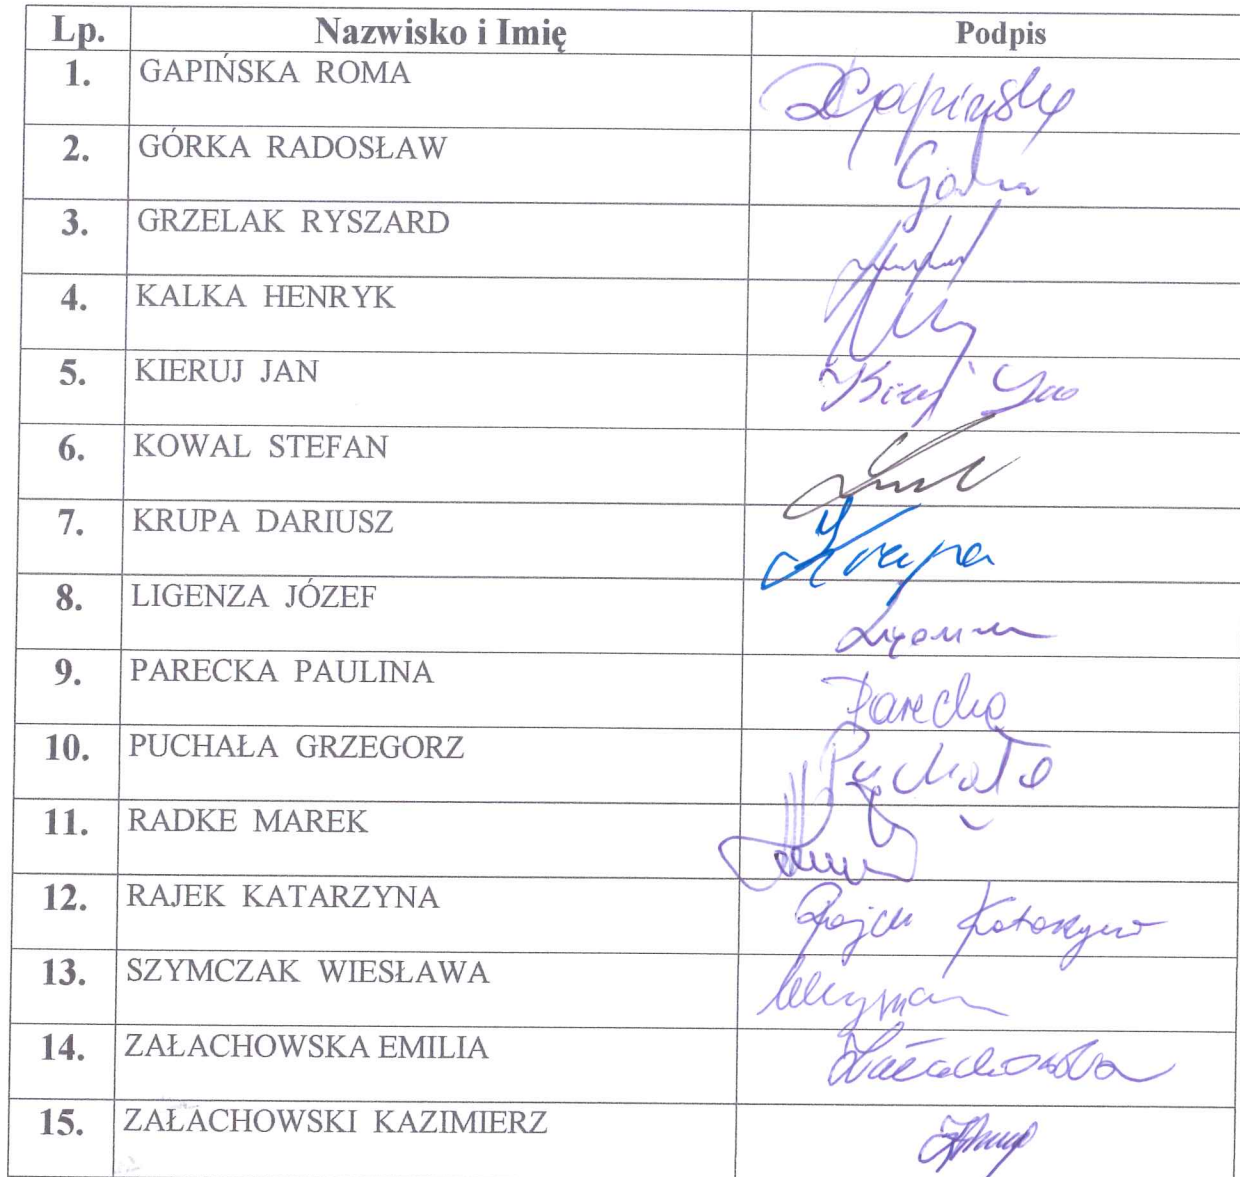 Lp. Nazwisko i Imię Podpis
1. GAPIŃSKA ROMA
2. GÓRKA RADOSŁAW
3. GRZELAK RYSZARD
4. KALKA HENRYK
5. KIERUJ JAN
6. KOWAL STEFAN
7. KRUPA DARIUSZ Krupa
8. LIGENZA JÓZEF
9. PARECKA PAULINA Parecka
10. PUCHAŁA GRZEGORZ Puchała
11. RADKE MAREK
12. RAJEK KATARZYNA Rajek Katarzyna
13. SZYMCZAK WIESŁAWA
14. ZAŁACHOWSKA EMILIA Załachowska
15. ZAŁACHOWSKI KAZIMIERZ